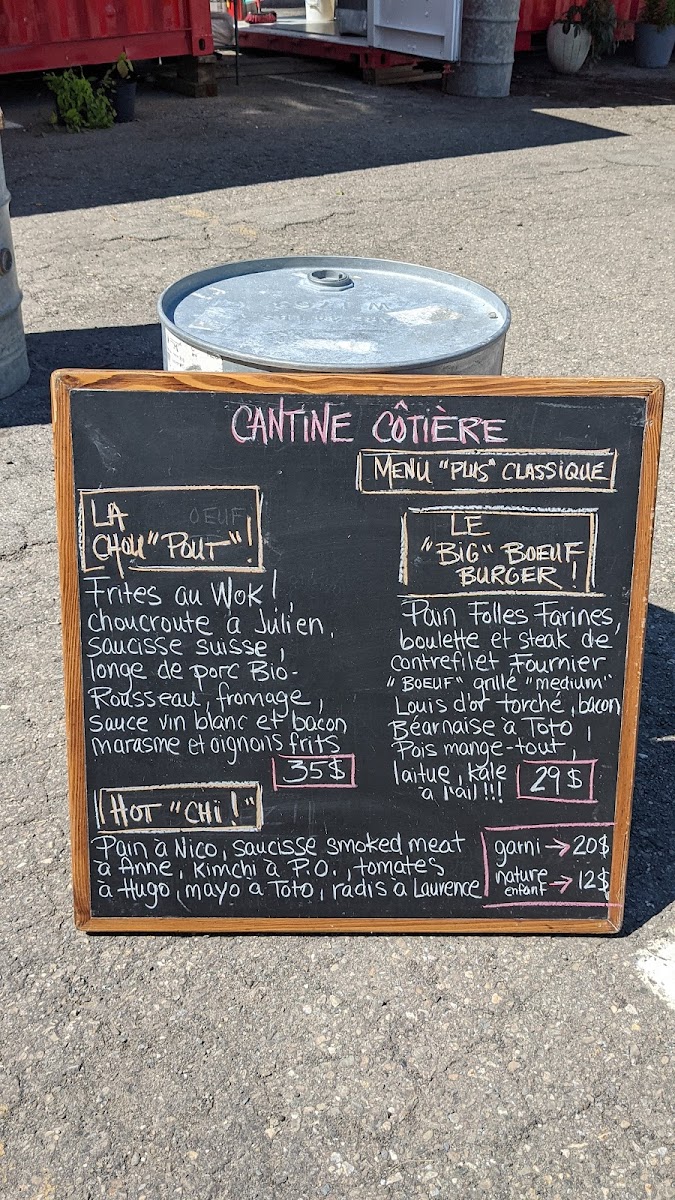 CANTINE CÔTIÈRE
MENU "PLUS" CLASSIQUE
LA
CHOU "POUT"!
Frites au Wok!,
choucroute à Julien,
saucisse suisse,
longe de porc Bio-
Rousseau, fromage,
sauce vin blanc et bacon
marasme et oignons frits
35$
LE
"BIG" BOEUF
BURGER!
Pain Folles Farines,
boulette et steak de
contrefilet Fournier
"BOEUF" grillé "medium"
Louis d'or torché, bacon
Béarnaise à Toto,
Pois mange-tout,
laitue, kale
à l'ail!!!
29$
HOT "CHI!"
Pain à Nico, saucisse smoked meat
à Anne, Kimchi à P.O., tomates
à Hugo, mayo à Toto, radis à Laurence
garni → 20$
nature
enfant → 12$